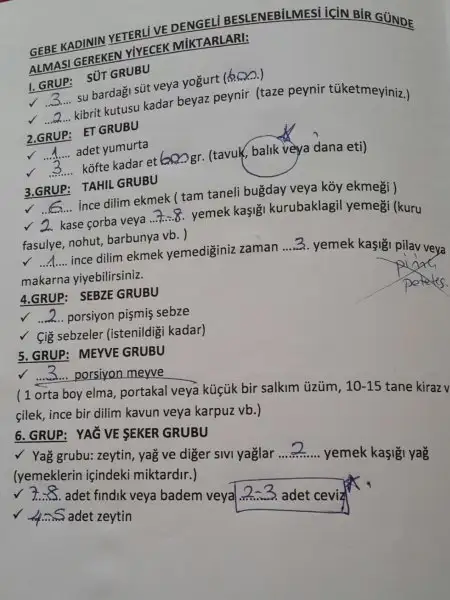 GEBE KADININ YETERLİ VE DENGELİ BESLENEBİLMESİ İÇİN BİR GÜNDE
ALMASI GEREKEN YİYECEK MİKTARLARI:
I. GRUP: SÜT GRUBU
✓ ..3.... su bardağı süt veya yoğurt (600.)
✓ ...2.... kibrit kutusu kadar beyaz peynir (taze peynir tüketmeyiniz.)
2.GRUP: ET GRUBU
✓ ...1.... adet yumurta
✓ ...3.... köfte kadar et 600 gr. (tavuk, balık veya dana eti)
3.GRUP: TAHIL GRUBU
✓ ...6.... ince dilim ekmek ( tam taneli buğday veya köy ekmeği )
✓ 2 kase çorba veya ..7-8. yemek kaşığı kurubaklagil yemeği (kuru
fasulye, nohut, barbunya vb. )
✓ ...1.... ince dilim ekmek yemediğiniz zaman ....3. yemek kaşığı pilav veya
makarna yiyebilirsiniz.
pirinç
patates.
4.GRUP: SEBZE GRUBU
✓ ...2... porsiyon pişmiş sebze
✓ Çiğ sebzeler (istenildiği kadar)
5. GRUP: MEYVE GRUBU
✓ ....3.... porsiyon meyve
( 1 orta boy elma, portakal veya küçük bir salkım üzüm, 10-15 tane kiraz v
çilek, ince bir dilim kavun veya karpuz vb.)
6. GRUP: YAĞ VE ŞEKER GRUBU
✓ Yağ grubu: zeytin, yağ ve diğer sıvı yağlar ....2...... yemek kaşığı yağ
(yemeklerin içindeki miktardır.)
✓ 7-8. adet fındık veya badem veya ..2-3 adet ceviz
✓ 4-5 adet zeytin